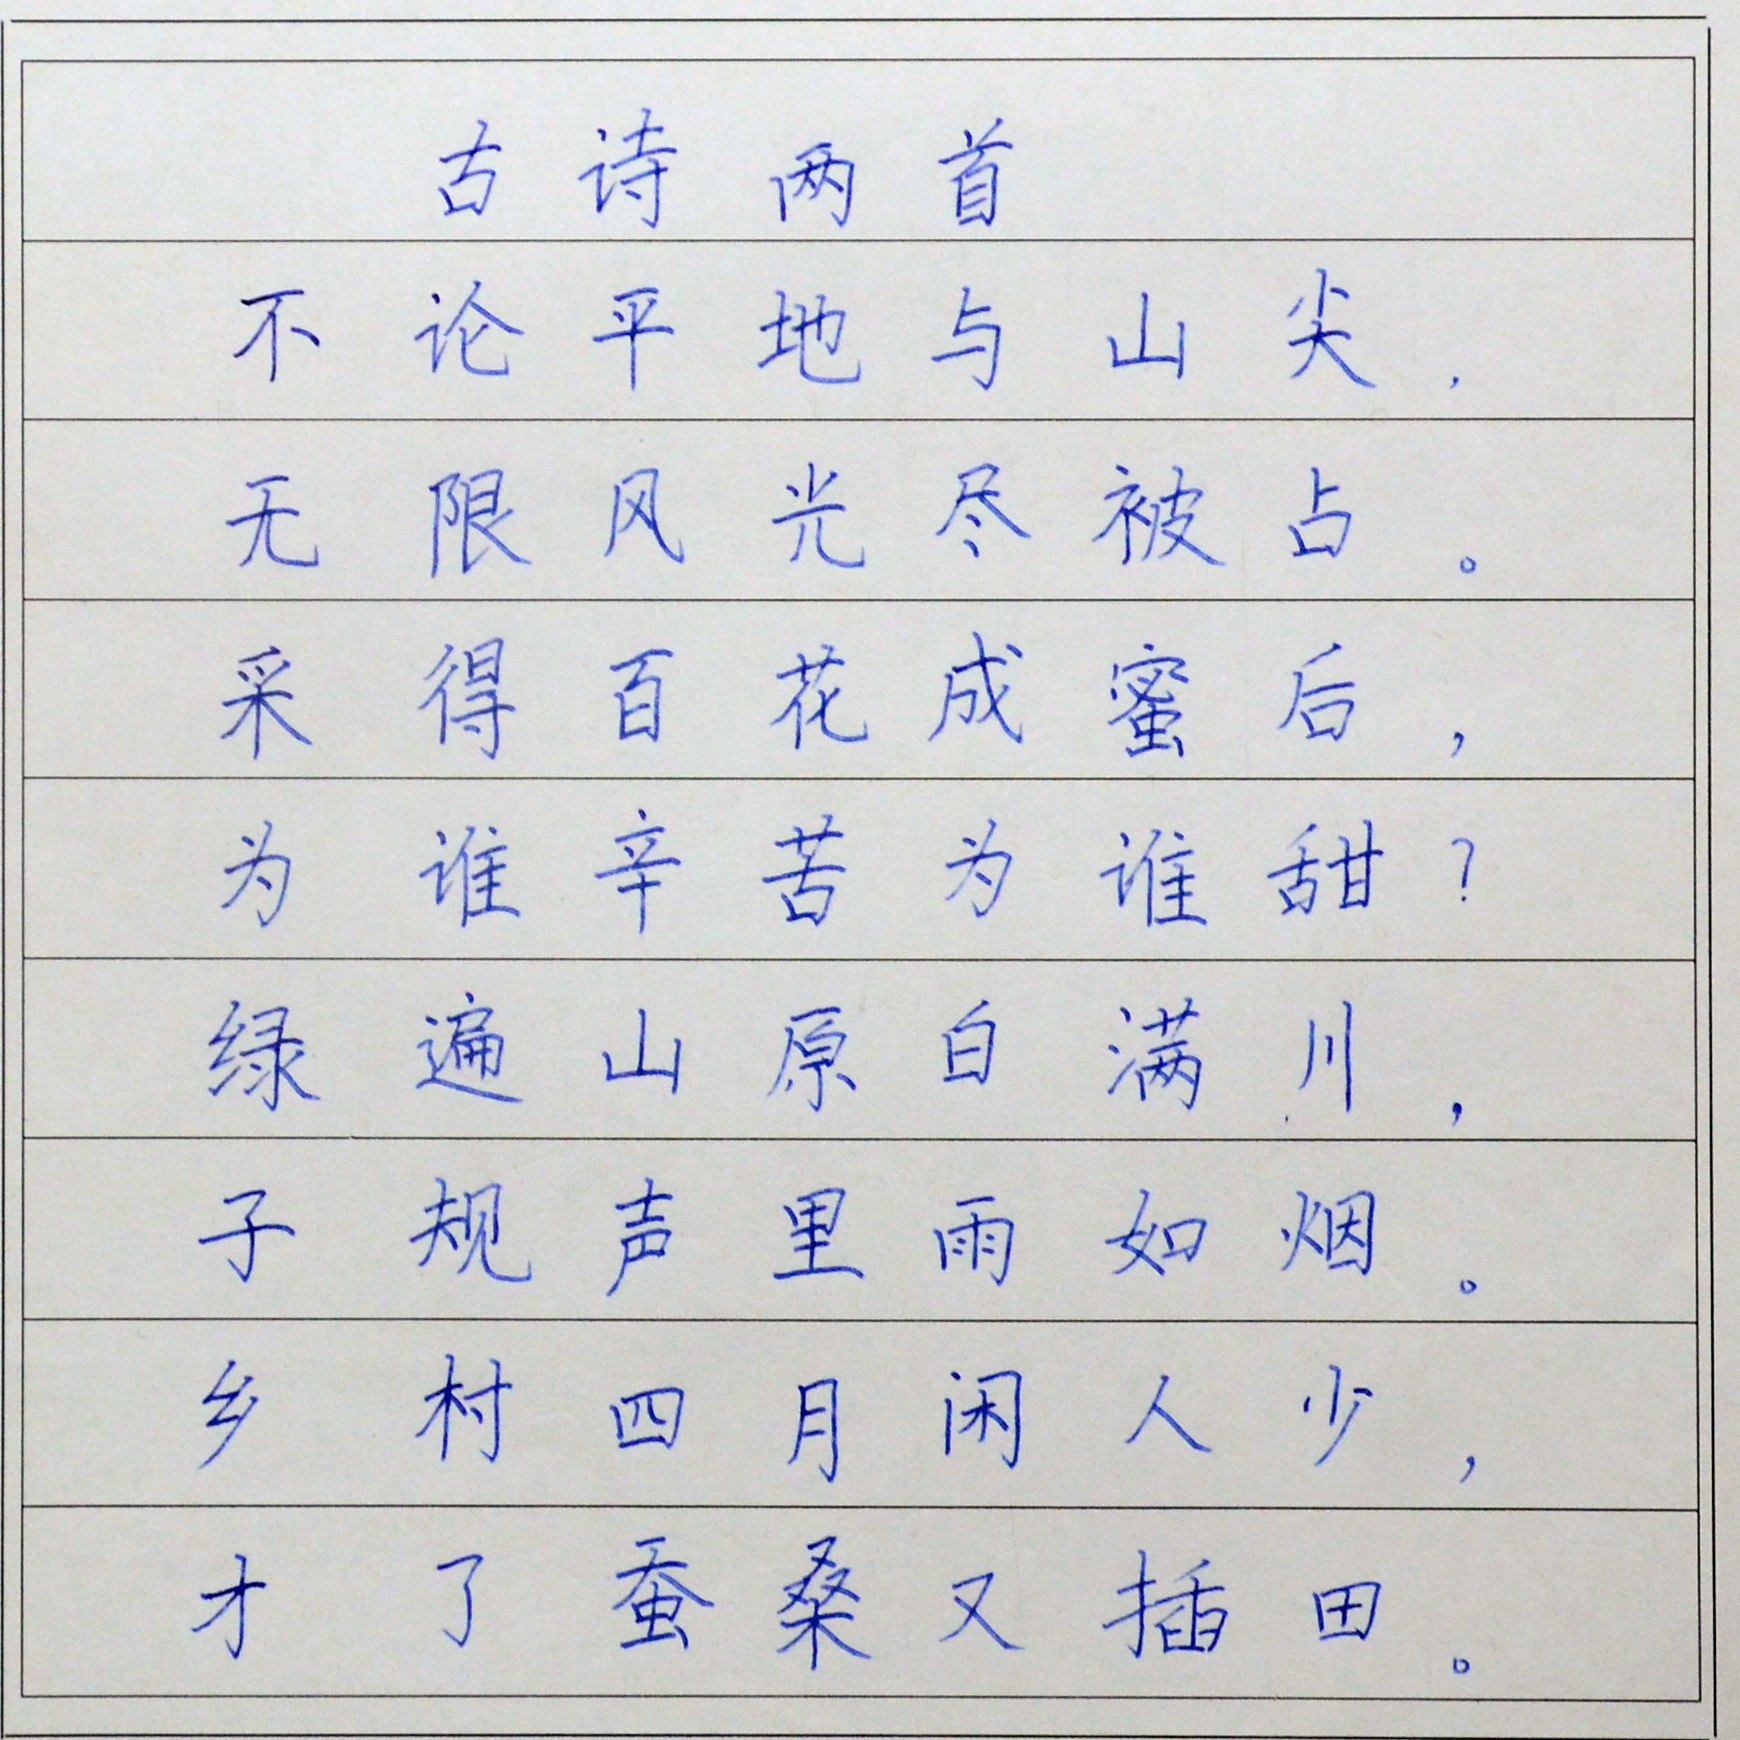 古诗两首
不论平地与山尖，
无限风光尽被占。
采得百花成蜜后，
为谁辛苦为谁甜？
绿遍山原白满川，
子规声里雨如烟。
乡村四月闲人少，
才了蚕桑又插田。